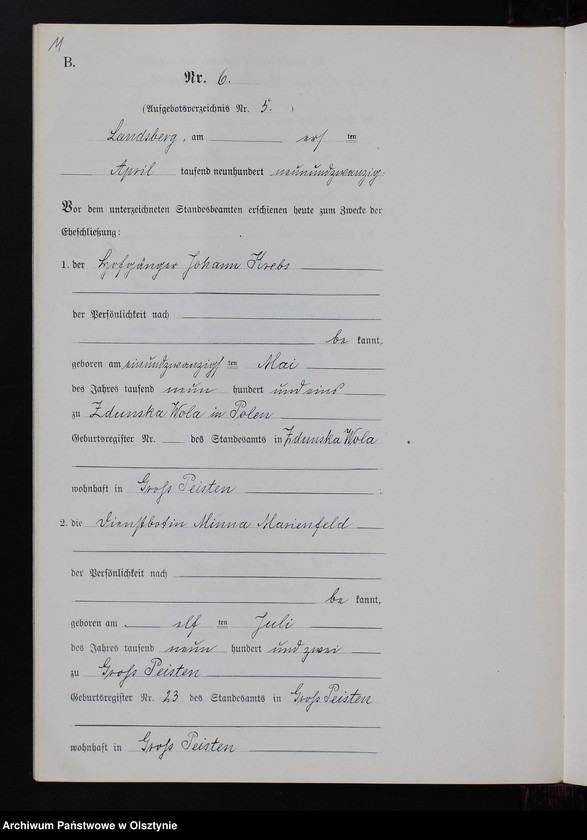 11
B.
Nr. 6.
(Aufgebotsverzeichnis Nr. 5. )
Landsberg, am ers ten
April tausend neunhundert neunundzwanzig.
Vor dem unterzeichneten Standesbeamten erschienen heute zum Zwecke der
Eheschließung:
1. der Hofgänger Johann Krebs
der Persönlichkeit nach
be kannt,
geboren am einundzwanzigs ten Mai
des Jahres tausend neun hundert und eins
zu Zdunska Wola in Polen
Geburtsregister Nr. des Standesamts in Zdunska Wola
wohnhaft in Gross Peisten
2. die Dienstbotin Minna Marienfeld
der Persönlichkeit nach
be kannt,
geboren am elf ten Juli
des Jahres tausend neun hundert und zwei
zu Gross Peisten
Geburtsregister Nr. 23 des Standesamts in Gross Peisten
wohnhaft in Gross Peisten
Archiwum Państwowe w Olsztynie